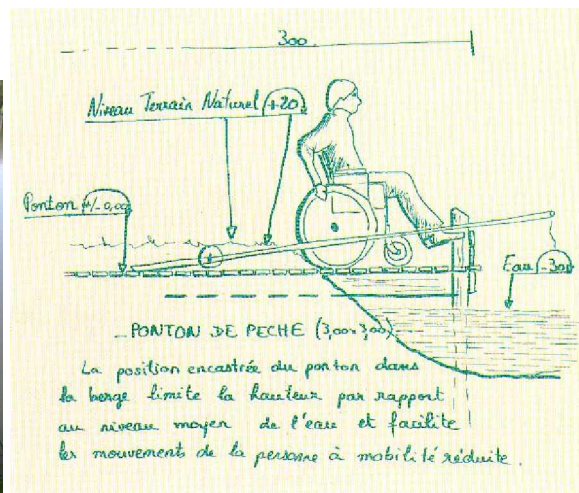 300
Niveau Terrain Naturel +20
Ponton +/- 0,00
Eau -30
PONTON DE PECHE (3,00x3,00)
La position encastrée du ponton dans
la berge limite la hauteur par rapport
au niveau moyen de l'eau et facilite
les mouvements de la personne à mobilité réduite.